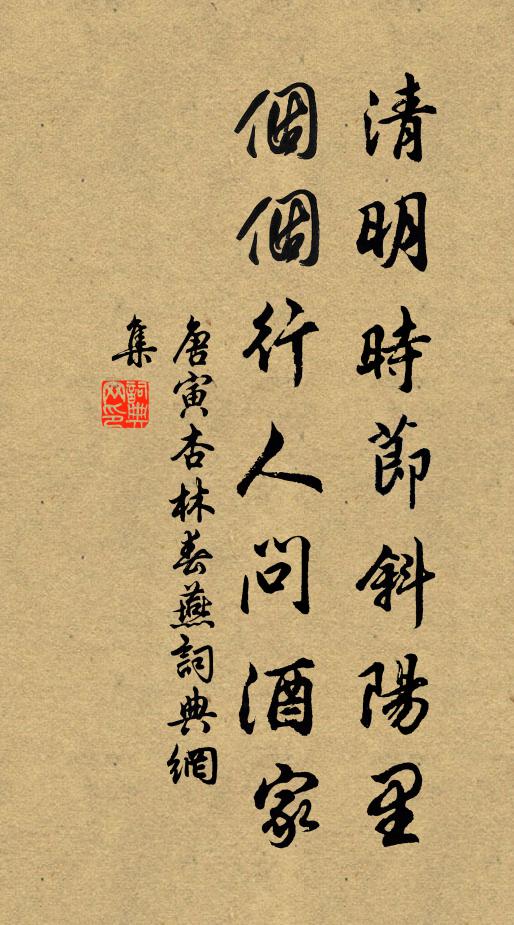 清明時節斜陽里
個個行人問酒家
唐寅杏林春燕詞典網
集
詞典
网印